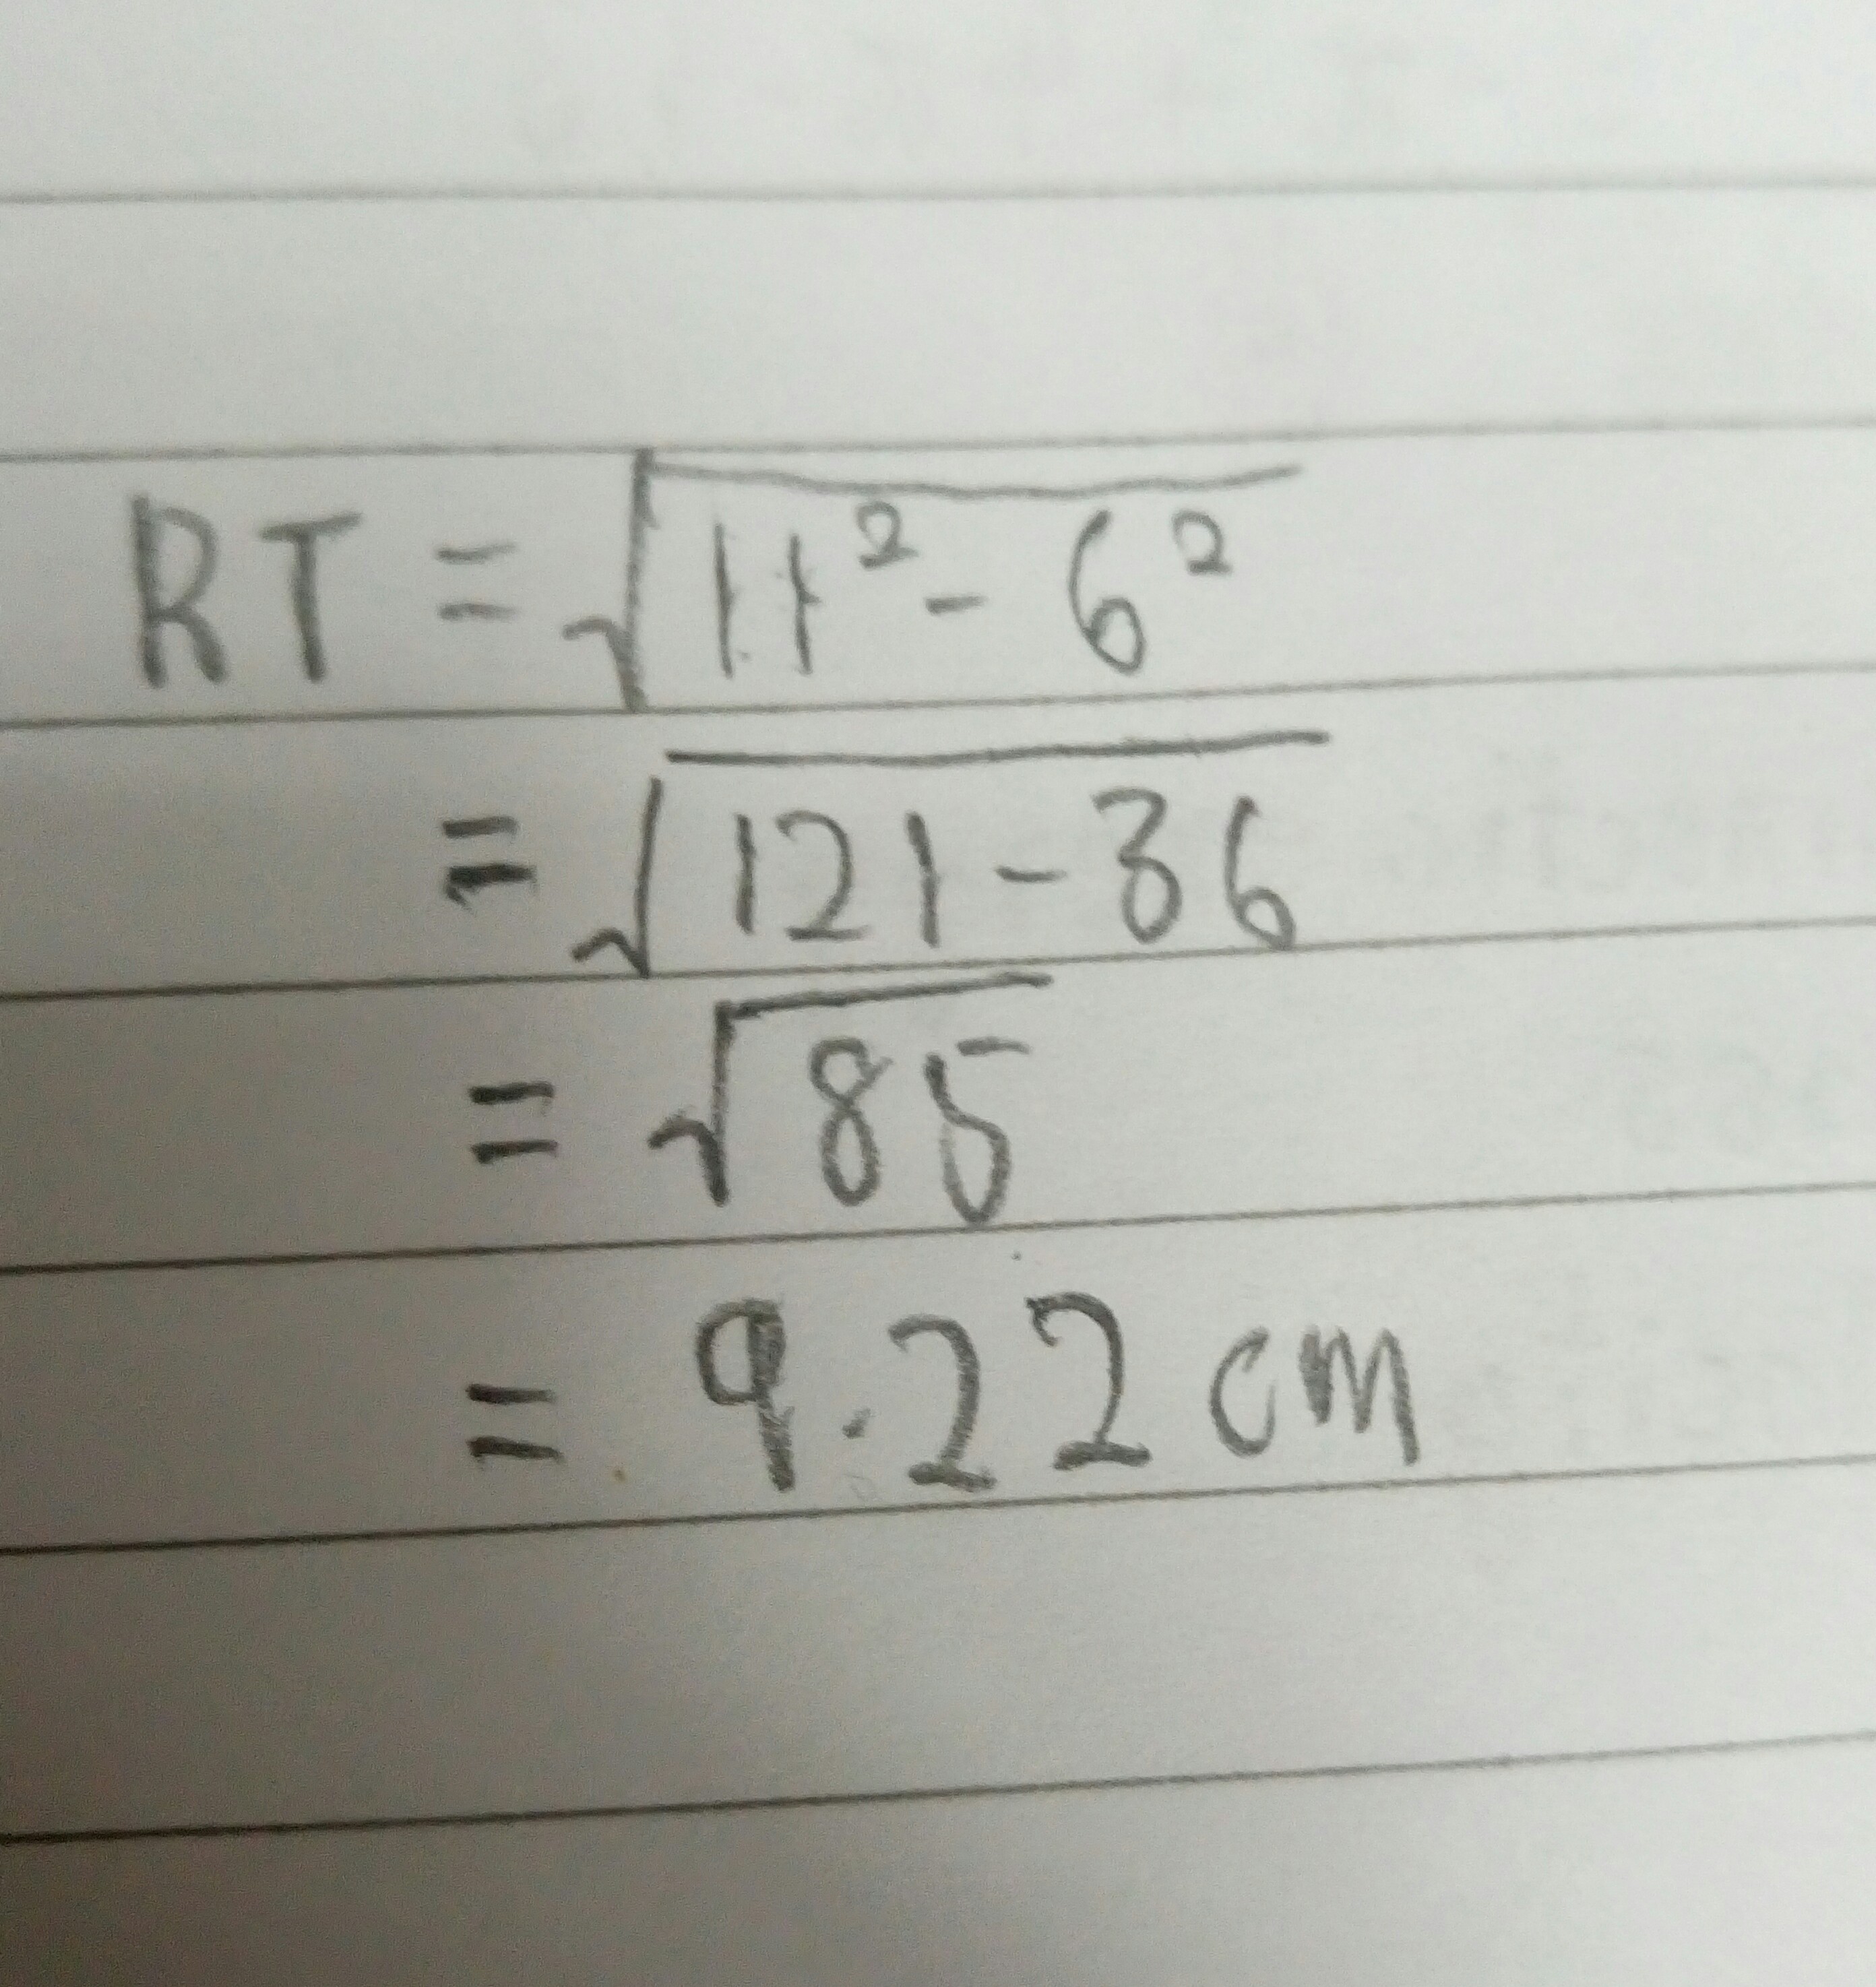 RT = √11² - 6²
= √121 - 36
= √85
= 9.22 cm